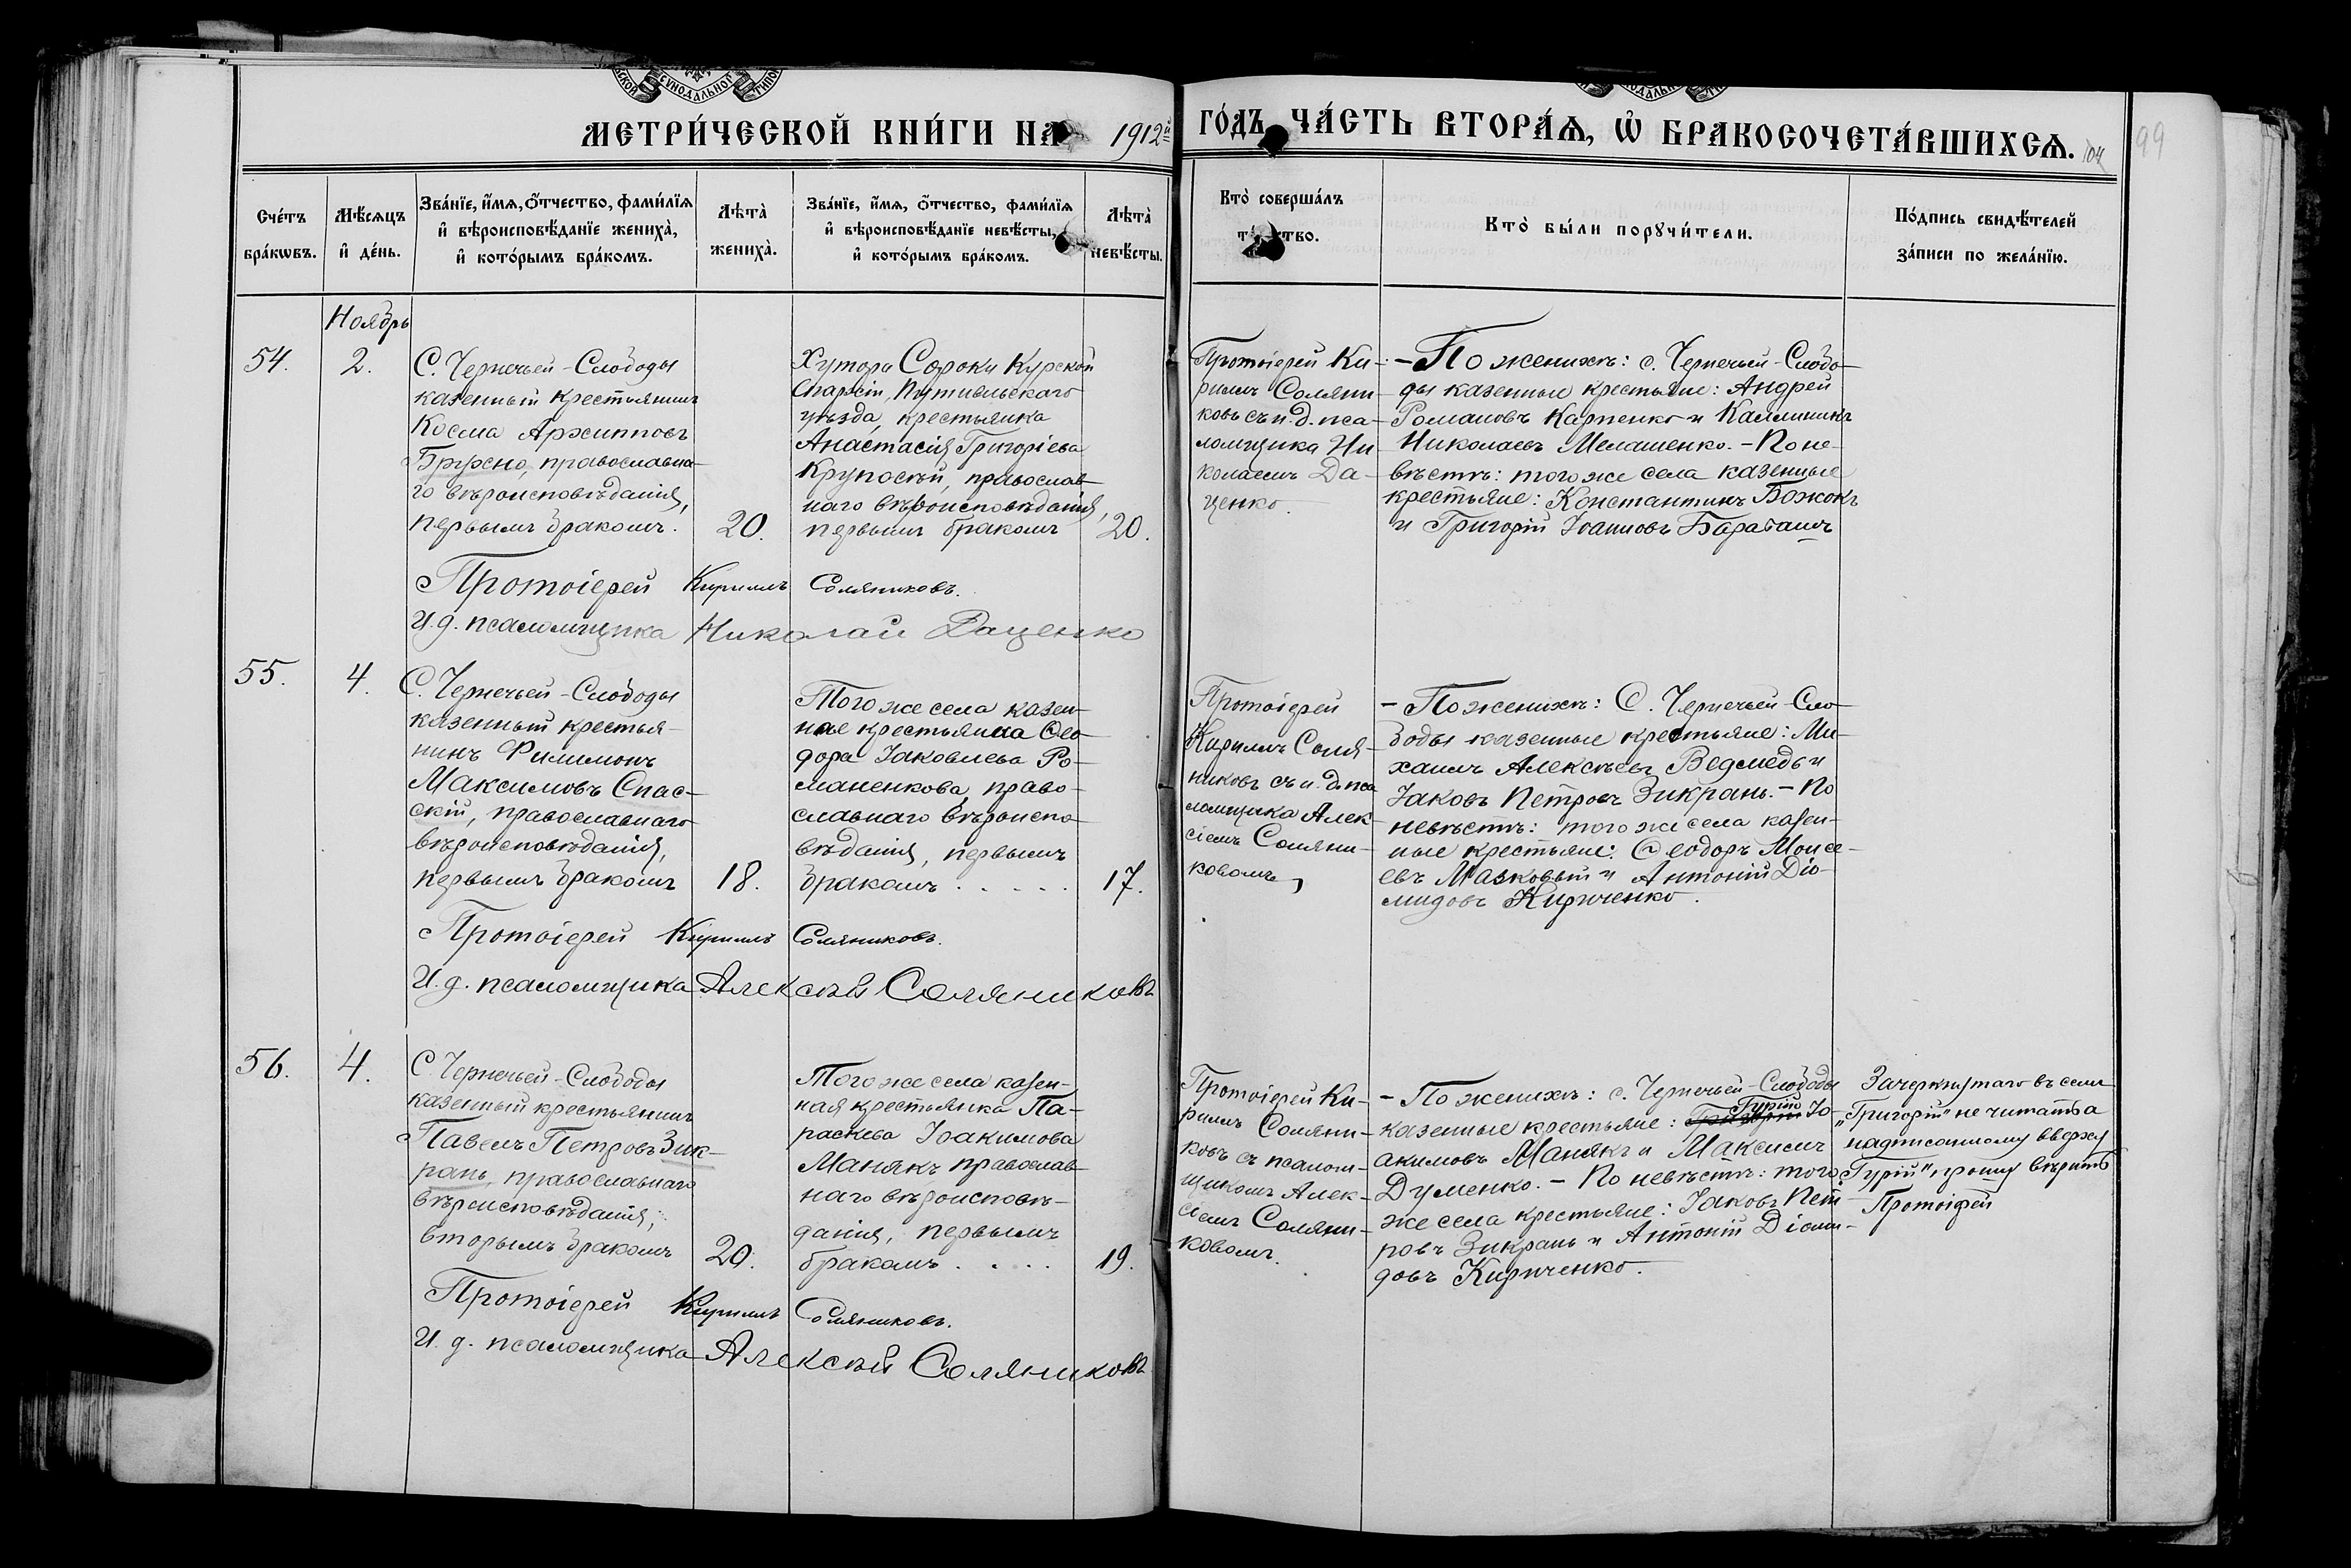 МЕТРИ́ЧЕСКОЙ КНИ́ГИ НА 1912й
ГО́ДЪ ЧА́СТЬ ВТОРА́Ѧ, Ѽ БРАКОСОЧЕТА́ВШИХСѦ.
104
99
Сче́тъ бра́кѡвъ.
Мѣ́сѧцъ и҆ де́нь.
Зва́нїе, и҆́мѧ, ѻ҆́тчество, фами́лїѧ
и҆ вѣроисповѣ́данїе жениха̀,
и҆ кото́рымъ бра́комъ.
Лѣта̀ жениха̀.
Зва́нїе, и҆́мѧ, ѻ҆́тчество, фами́лїѧ
и҆ вѣроисповѣ́данїе невѣ́сты,
и҆ кото́рымъ бра́комъ.
Лѣта̀ невѣ́сты.
Кто̀ соверша́лъ
Кто̀ бы́ли порꙋчи́тели.
По́дпись свидѣ́телей
за́писи по жела́нїю.
Ноябрь
54.
2.
С. Чернечьей-Слободы
казенный крестьянинъ
Косма Архипповъ
Бружно, православна-
го вѣроисповѣданія,
первымъ бракомъ.
20.
Хутора Сороки Курской
Епархіи, Путивльскаго
уѣзда, крестьянка
Анастасія Григоріева
Крупоскій, православ-
наго вѣроисповѣданія,
первымъ бракомъ
20.
Протоіерей Ки-
риллъ Соляни-
ковъ съ и.д. пса-
ломщика Ни-
колаемъ Да-
ценко.
- По женихѣ: с. Чернечьей-Слобо-
ды казенные крестьяне: Андрей
Романовъ Карпенко и Каллиникъ
Николаевъ Мелашенко. - По не-
вѣстѣ: того же села казенные
крестьяне: Константинъ Божокъ
и Григорій Іоанновъ Барабашъ
Протоіерей Кириллъ Соляниковъ.
И.д. псаломщика Николай Даценко
55.
4.
С. Чернечьей-Слободы
казенный крестья-
нинъ Филимонъ
Максимовъ Спас-
скій, православнаго
вѣроисповѣданія,
первымъ бракомъ
18.
Того же села казен-
ные крестьянка Ѳео-
дора Іаковлева Ро-
маненкова, право-
славнаго вѣроиспо-
вѣданія, первымъ
бракомъ . . . . .
17.
Протоіерей
Кириллъ Соля-
никовъ съ и. д. пса
ломщика Алек-
сіемъ Соляни-
ковомъ,
- По женихѣ: С. Чернечьей-Сло-
боды казенные крестьяне: Ми-
хаилъ Алексѣевъ Ведмедь и
Іаковъ Петровъ Зикрань. - По
невѣстѣ: того же села казен-
ные крестьяне: Ѳеодоръ Моисе-
евъ Мазковый и Антоній Діо-
мидовъ Кириченко.
Протоіерей Кириллъ Соляниковъ.
И.д. псаломщика Алексѣй Соляниковъ
56.
4.
С. Чернечьей-Слободы
казенный крестьянинъ
Павелъ Петровъ Зик-
рань, православнаго
вѣроисповѣданія,
вторымъ бракомъ
20.
Того же села казен-
ная крестьянка Па-
раскева Іоакимова
Манякъ православ-
наго вѣроисповѣ-
данія, первымъ
бракомъ . . . .
19.
Протоіерей Ки-
риллъ Соляни-
ковъ съ псалом-
щикомъ Алек-
сіемъ Соляни-
ковомъ.
- По женихѣ: с. Чернечьей-Слободы
Гурій
казенные крестьяне: Григорій Іо-
акимовъ Манякъ и Максимъ
Думенко. - По невѣстѣ: того
же села крестьяне: Іаковъ Пет-
ровъ Зикрань и Антоній Діоми-
довъ Кириченко.
Зачеркнутаго въ семъ
„Григорій" не читать а
надписанному вверху
„Гурій", прошу вѣрить
Протоіерей
Протоіерей Кириллъ Соляниковъ.
И. д. псаломщика Алексѣй Соляниковъ